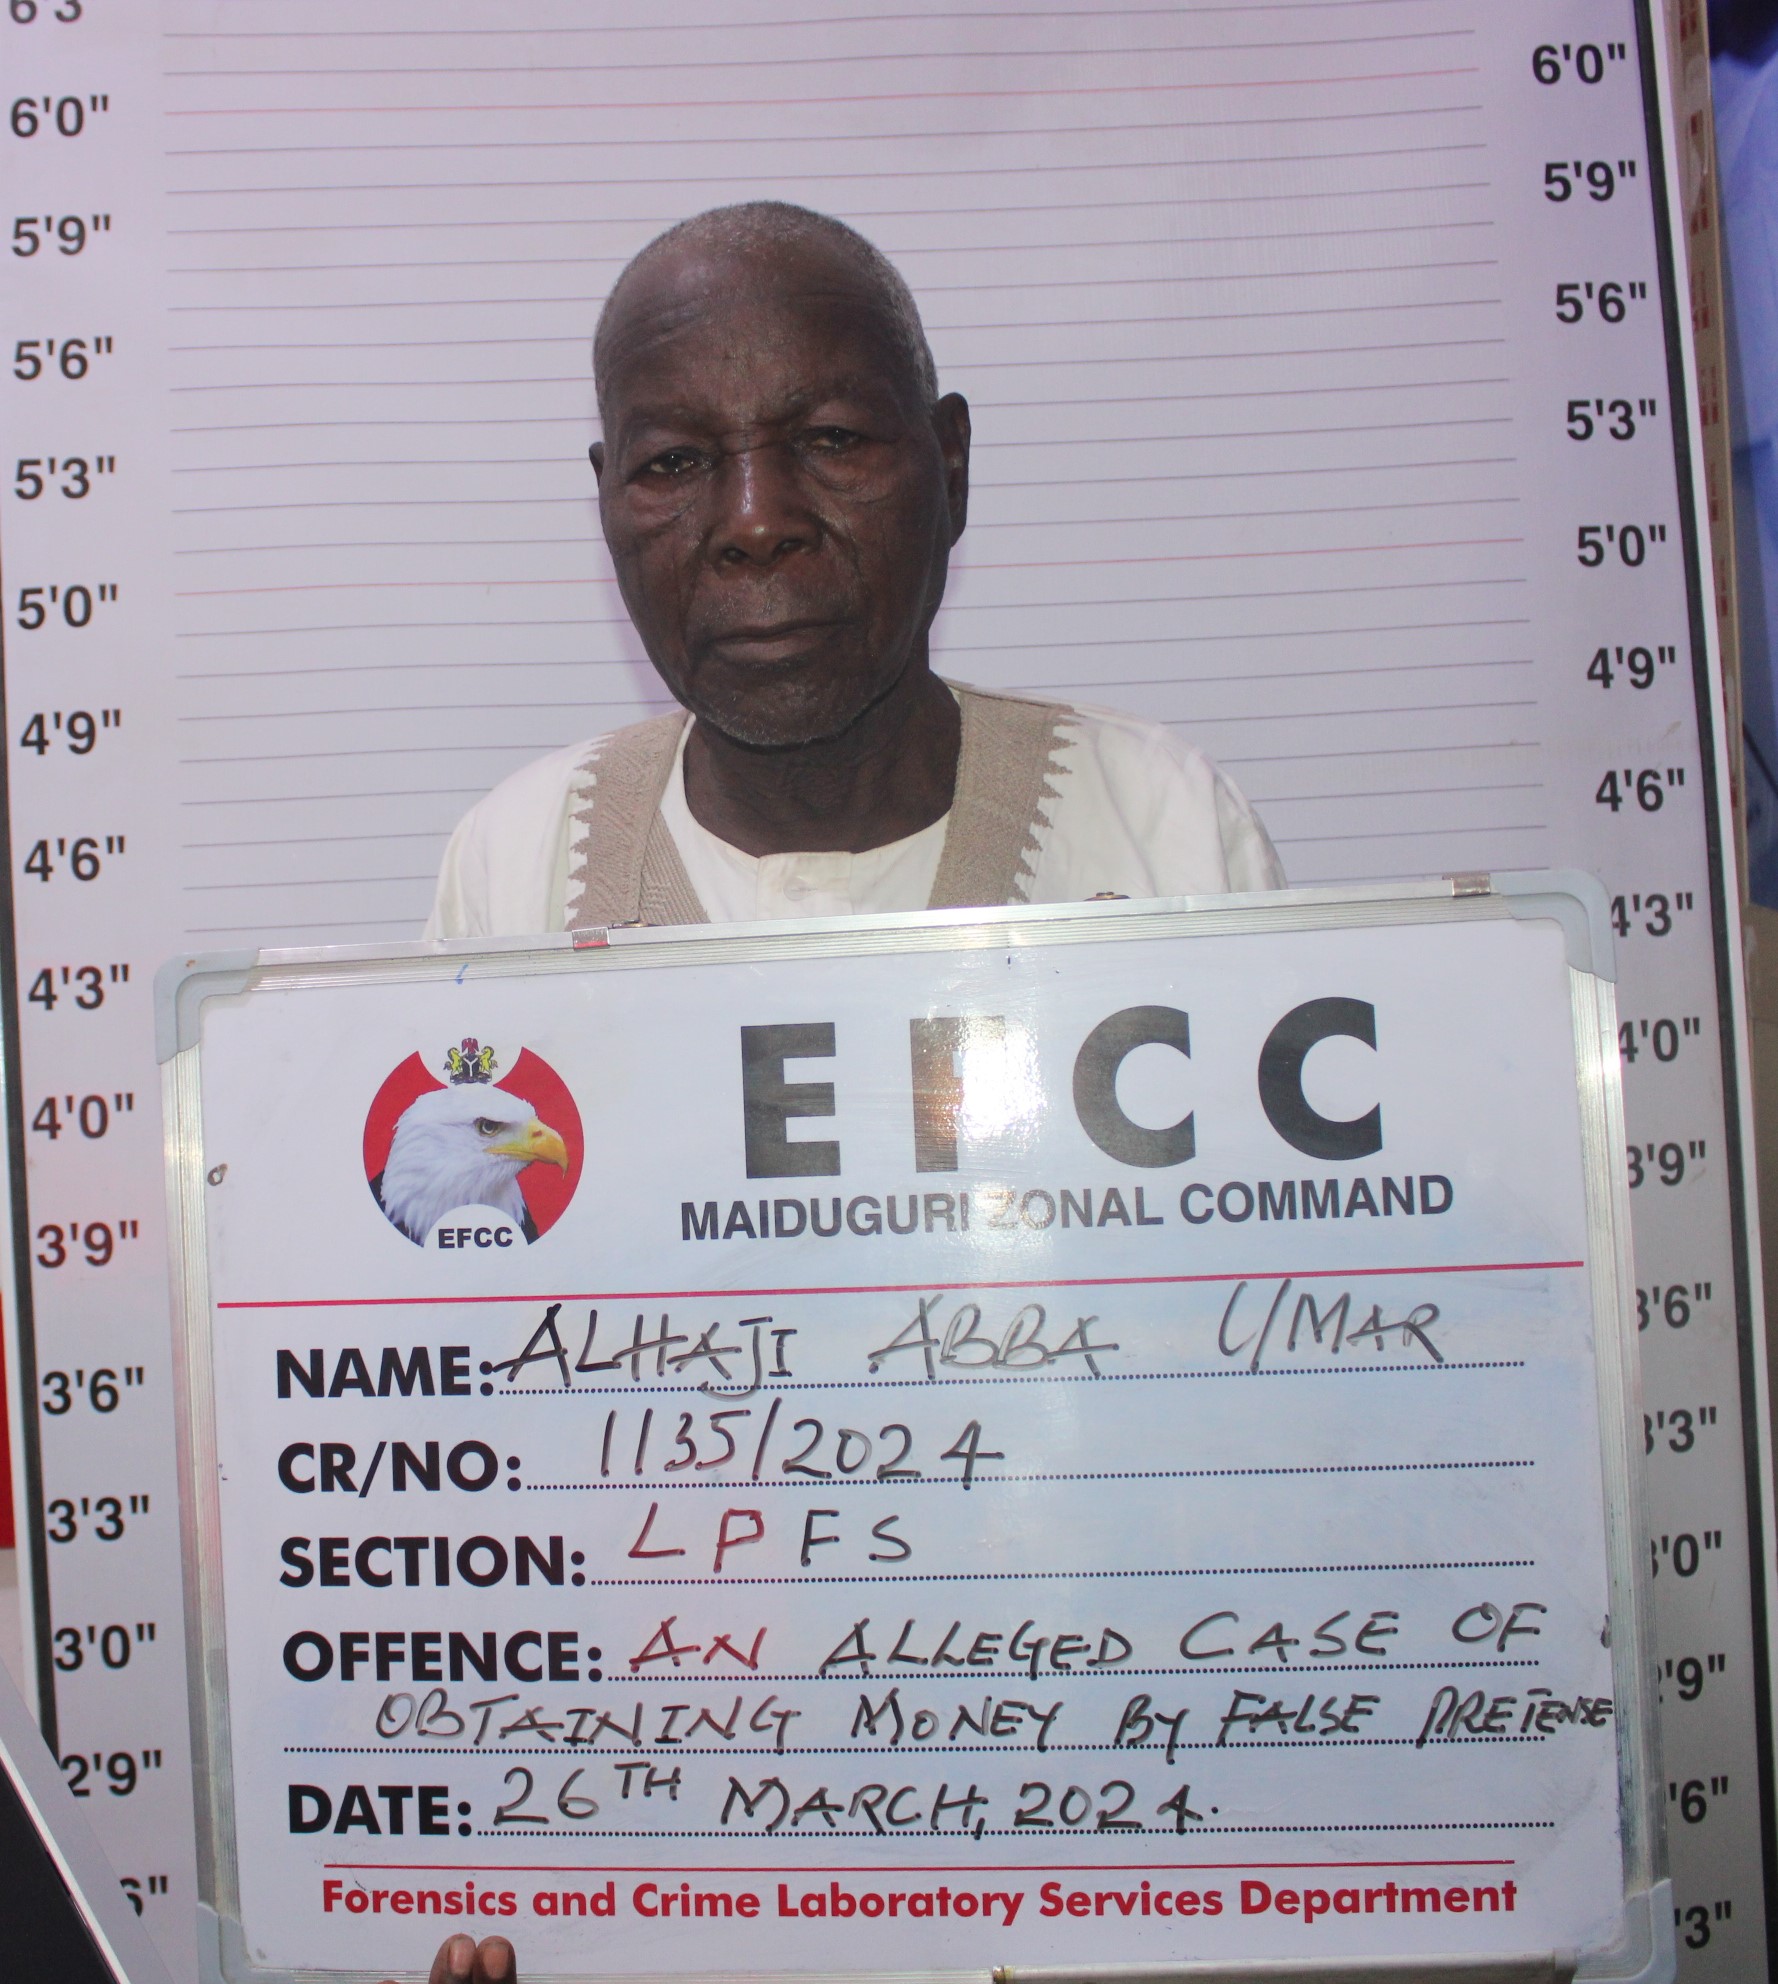 6'3
6'0"
5'9"
5'6"
5'3"
5'0"
4'9"
4'6"
4'3"
4'0"
3'9"
3'6"
3'3"
3'0"
2'9"
6"
6'0"
5'9"
5'6"
5'3"
5'0"
4'9"
4'6"
4'3"
4'0"
3'9"
3'6"
3'3"
3'0"
2'9"
'6"
'3"
EFCC
EFCC
MAIDUGURI ZONAL COMMAND
NAME: ALHAJI ABBA UMAR
CR/NO: 1135/2024
SECTION: LPFS
OFFENCE: AN ALLEGED CASE OF
OBTAINING MONEY BY FALSE PRETENSE
DATE: 26TH MARCH, 2024.
Forensics and Crime Laboratory Services Department